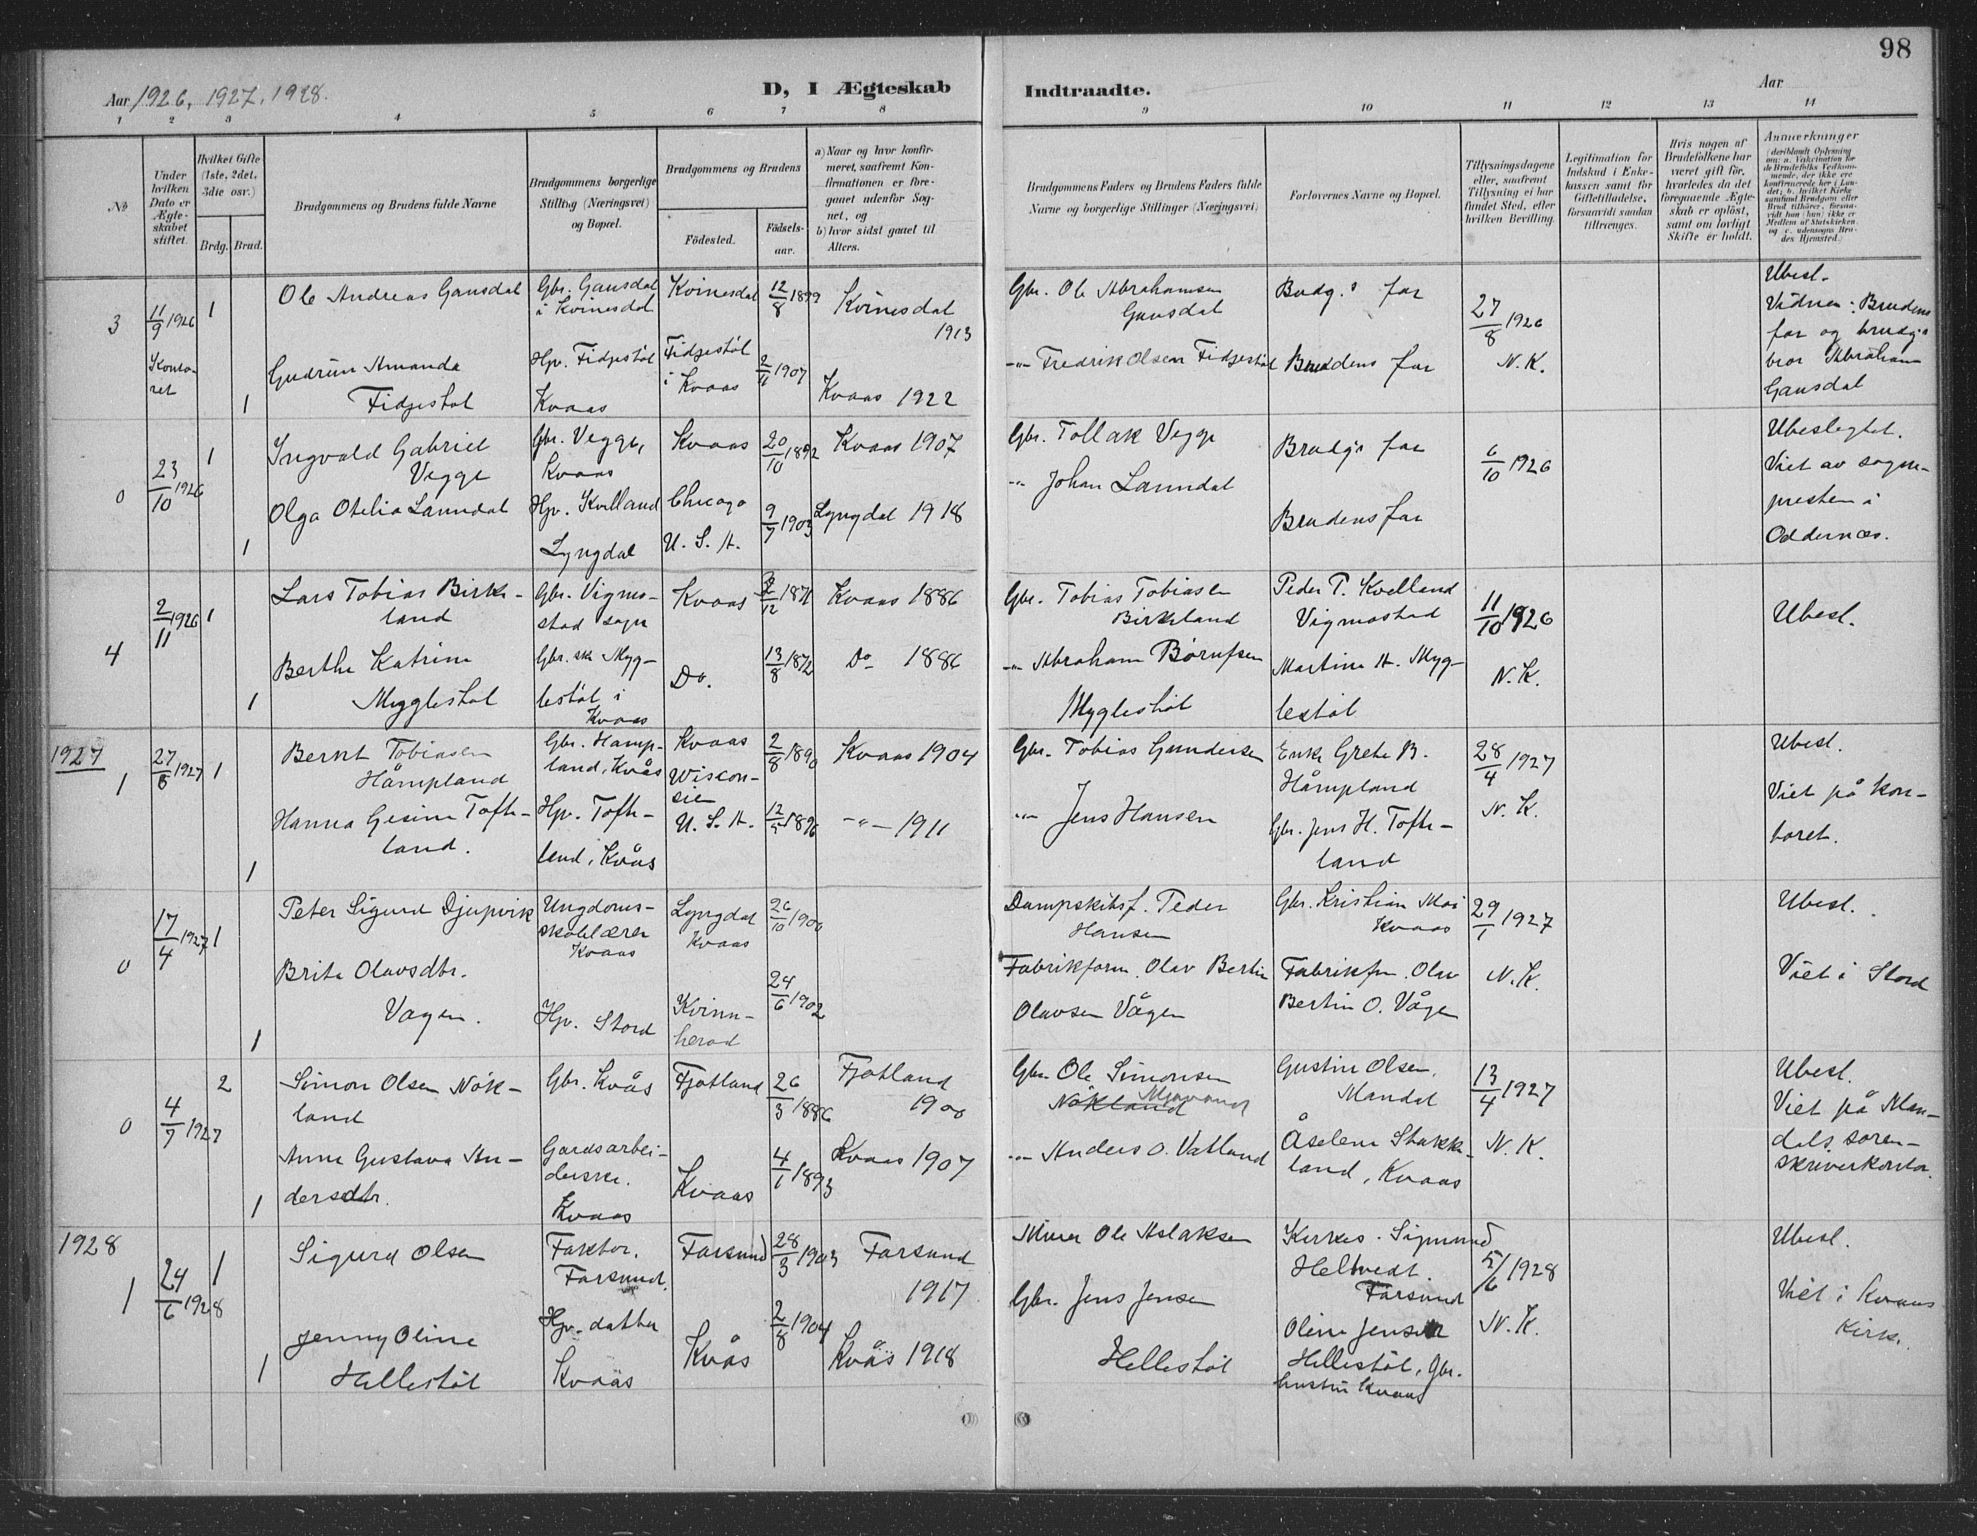 98
Aar 1926, 1927, 1928.
D, I Ægteskab
Indtraadte.
Aar
1 2 3 4 5 6 7 8 9 10 11 12 13 14
No
Under
hvilken
Dato er
Ægte-
skabet
stiftet.
Hvilket Gifte
(1ste, 2det,
3die osv.)
Brdg. Brud.
Brudgommens og Brudens fulde Navne
Brudgommens borgerlige
Stilling (Næringsvei)
og Bopæl.
Brudgommens og Brudens
Fødested.
Fødsels-
aar.
a) Naar og hvor konfir-
meret, saafremt Kon-
firmationen er fore-
gaaet udenfor Sog-
net, og
b) hvor sidst gaaet til
Alters.
Brudgommens Faders og Brudens Faders fulde
Navne og borgerlige Stillinger (Næringsvei)
Forlovernes Navne og Bopæl.
Tillysningsdagene
eller, saafremt
Tillysning ei har
fundet Sted, efter
hvilken Bevilling.
Legitimation for
Indskud i Enke-
kassen samt for
Giftetilladelse,
forsaavidt saadan
tiltrænges.
Hvis nogen af
Brudefolkene har
været gift før,
hvorledes da det
foregaaende Ægte-
skab er opløst,
samt om lovligt
Skifte er holdt.
Anmærkninger
3
11/9 1926
Konto-
ret
1
Ole Andreas Gausdal
Gbr. Gausdal
i Kvinesdal
Kvinesdal
12/8 1899
Kvinesdal
1913
Gbr. Ole Abrahamsen
Gausdal
Brudg.s far
27/8 1926
N.K.
Ubesl.
Vidner: Brudens
far og brudg.s
bror Abraham
Gausdal
1
Gudrun Amanda
Fidjestøl
Hpv. Fidjestøl
Kvaas
Fidjestøl
i Kvaas
1907
Kvaas 1922
-"- Fredrik Olsen Fidjestøl
Brudens far
0
23/10 1926
1
Ingvald Gabriel
Vegge
Gbr. Vegge,
Kvaas
Kvaas
20/10 1892
Kvaas 1907
Gbr. Tollak Vegge
Brudg.s far
6/10 1926
Ubeslegtet.
Viet av sogne-
presten i
Oddernæs.
1
Olga Otelia Lanndal
Hpv. Kvelland
Lyngdal
Chicago
U. S. A.
9/7 1903
Lyngdal 1918
-"- Johan Lanndal
Brudens far
4
2/11 1926
1
Lars Tobias Birke-
land
Gbr. Vigmo-
stad sogn
Kvaas
Kvaas 1886
Gbr. Tobias Tobiasen
Birkeland
Peder T. Kvelland
Vigmostad
11/10 1926
N.K.
Ubesl.
1
Berthe Katrine
Mygglestøl
Gbr. sk Myg-
lestøl i
Kvaas
Do.
13/8 1872
Do 1886
-"- Abraham Børufsen
Myglestøl
Martine A. Myg-
lestøl
1927
1
27/8 1927
1
Bernt Tobiasen
Håmpland
Gbr. Hamp-
land, Kvås
Kvaas
2/8 1890
Kvaas 1904
Gbr. Tobias Gundersen
Enke Grete B.
Håmpland
28/4 1927
N.K.
Ubesl.
Viet på kon-
toret.
1
Hanna Gesine Tofte-
land.
Hpv. Tofte-
land, Kvås
Wiscon-
sin
U. S. A.
-"- 1911
-"- Jens Hansen
Gbr. Jens H. Tofte-
land
0
17/4 1927
1
Peter Sigurd Djupvik
Ungdoms-
skolelærer
Kvaas
Lyngdal
Kvaas
26/10 1900
Dampskibsf. Peder
Hansen
Gbr. Kristian Moi
Kvaas
29/1 1927
N.K.
Ubesl.
Viet i Stord
1
Brita Olavsdtr.
Vagen.
Hpv. Stord
Kvinn-
herad
24/6 1902
Fabrikform. Olav Bertin
Olavsen Vågen
Fabrikfm. Olav
Bertin O. Vågen
0
4/7 1927
2
Simon Olsen Nök-
land
Gbr. Kvås
Fjotland
26/3 1886
Fjotland
1900
Gbr. Ole Simonsen
Nökland
Gustin Olsen,
Mandal
13/4 1927
N.K.
Ubesl.
Viet på Man-
dals soren-
skriverkontor.
1
Anne Gustava An-
dersdtr.
Gardsarbei-
derske.
Kvaas
Kvaas
4/1 1893
Kvaas 1907
-"- Anders O. Vatland
Åselene Stakke-
land, Kvaas
1928
1
24/6 1928
1
Sigurd Olsen
Faktor.
Farsund.
Farsund
28/3 1903
Farsund
1917
Murer Ole Aslaksen
Kirkes. Sigmund
Heltvedt.
Farsund
5/6 1928
N.K.
Ubesl.
Viet i Kvaas
Kirke.
1
Jenny Oline
Hellestøl
Hpv. datter
Kvaas
Kvås
2/8 1904
Kvås 1918
Gbr. Jens Jensen
Hellestøl
Oline Jensen
Hellestøl, Gbr.
hustru Kvaas